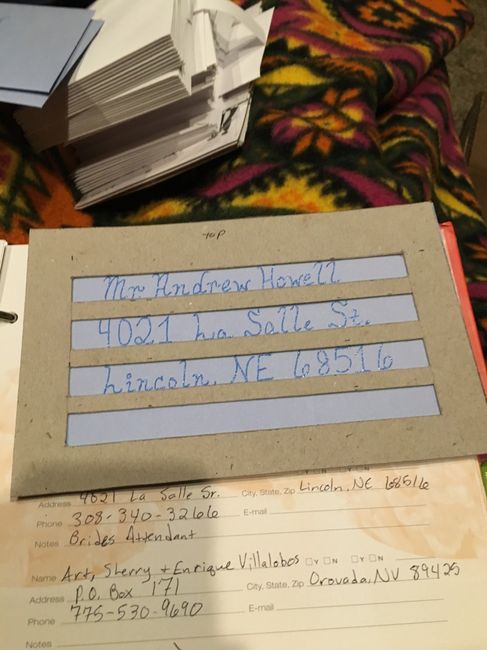 TOP
Mr Andrew Howell
4021 La Salle St.
Lincoln, NE 68516
Y N Y N
Address 4021 La Salle Sr. City, State, Zip Lincoln, NE 68516
Phone 308-340-3266 E-mail
Notes Brides Attendant
Name Art, Sherry + Enrique Villalobos Y N Y N
Address P.O. Box 171 City, State, Zip Orovada, NV 89425
Phone 775-530-9690 E-mail
Notes